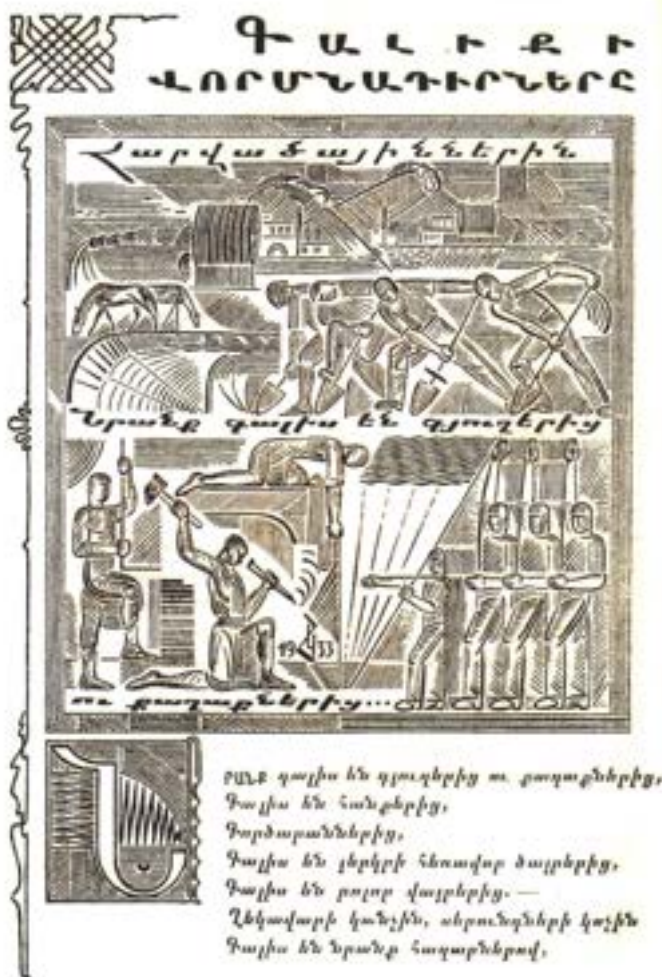 ԳԱԼԻՔԻ
ՎՈՐՄՆԱԴԻՐՆԵՐԸ
Հարվածայիններին
Նրանք գալիս են գյուղերից
1933
ու քաղաքներից...
ՆՐԱՆՔ գալիս են գյուղերից ու քաղաքներից,
Գալիս են հանքերից,
Գործարաններից,
Գալիս են յերկրի հեռավոր ծայրերից,
Գալիս են բոլոր վայրերից. —
Ղեկավարի կանչին, սերունդների կոչին
Գալիս են նրանք հազարներով,